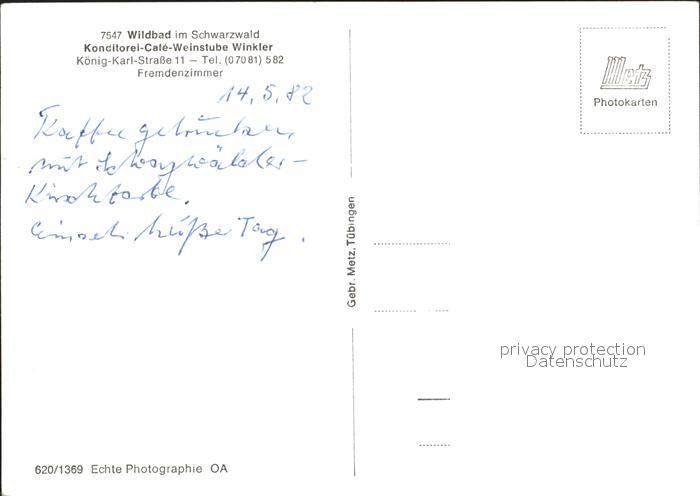 7547 Wildbad im Schwarzwald
Konditorei-Café-Weinstube Winkler
König-Karl-Straße 11 – Tel. (07081) 582
Fremdenzimmer
14. 5. 82
Kaffee getrunken,
mit Schwarzwälder-
Kirschtorte.
Tag.
Metz
Photokarten
Gebr. Metz, Tübingen
privacy protection
Datenschutz
620/1369 Echte Photographie OA